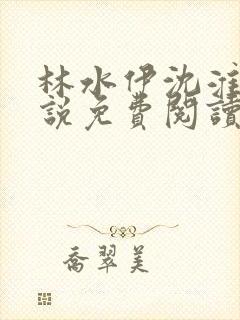 林水伊沈淮
説免費閱讀
喬翠美